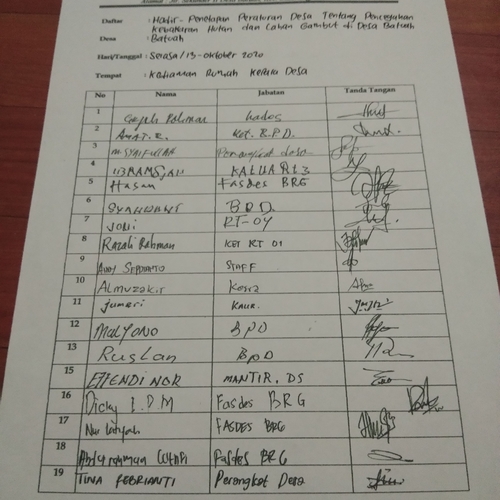 Daftar : Hadir - Penetapan Peraturan Desa Tentang Pencegahan
Kebakaran Hutan dan Lahan Gambut di Desa Batuah
Desa : Batuah
Hari/Tanggal : Selasa / 13 - Oktober 2020
Tempat : Kediaman Rumah Kepala Desa
No Nama Jabatan Tanda Tangan
1 Rahman kades
2 Ket. B.P.D.
3 M. SYAIFULLAH Perangkat desa
4 KETUA Rt 3
5 Hasan Fasdes BRG
6 B.P.D
7 JONI RT-04
8 Razali Rahman KET RT 01
9 STAFF
10 Almuzakir
11 Jumari Kaur.
12 MULYONO BPD
13 Ruslan BPD
15 EFFENDI NOR MANTIR. DS
16 Dicky I.D.M Fasdes BRG
17 FASDES BRG
18 Abdurahman Fasdes BRG
19 TINA FEBRIANTI Perangkat Desa